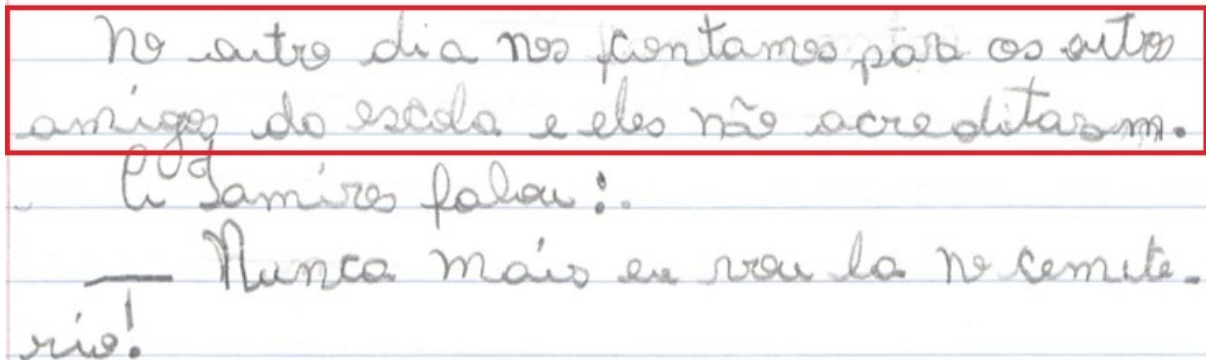 No outro dia nos contamos para os outro
amigos da escola e eles não acreditaram.
E Tamires falou:
— Nunca mais eu vou la no cemite-
rio!